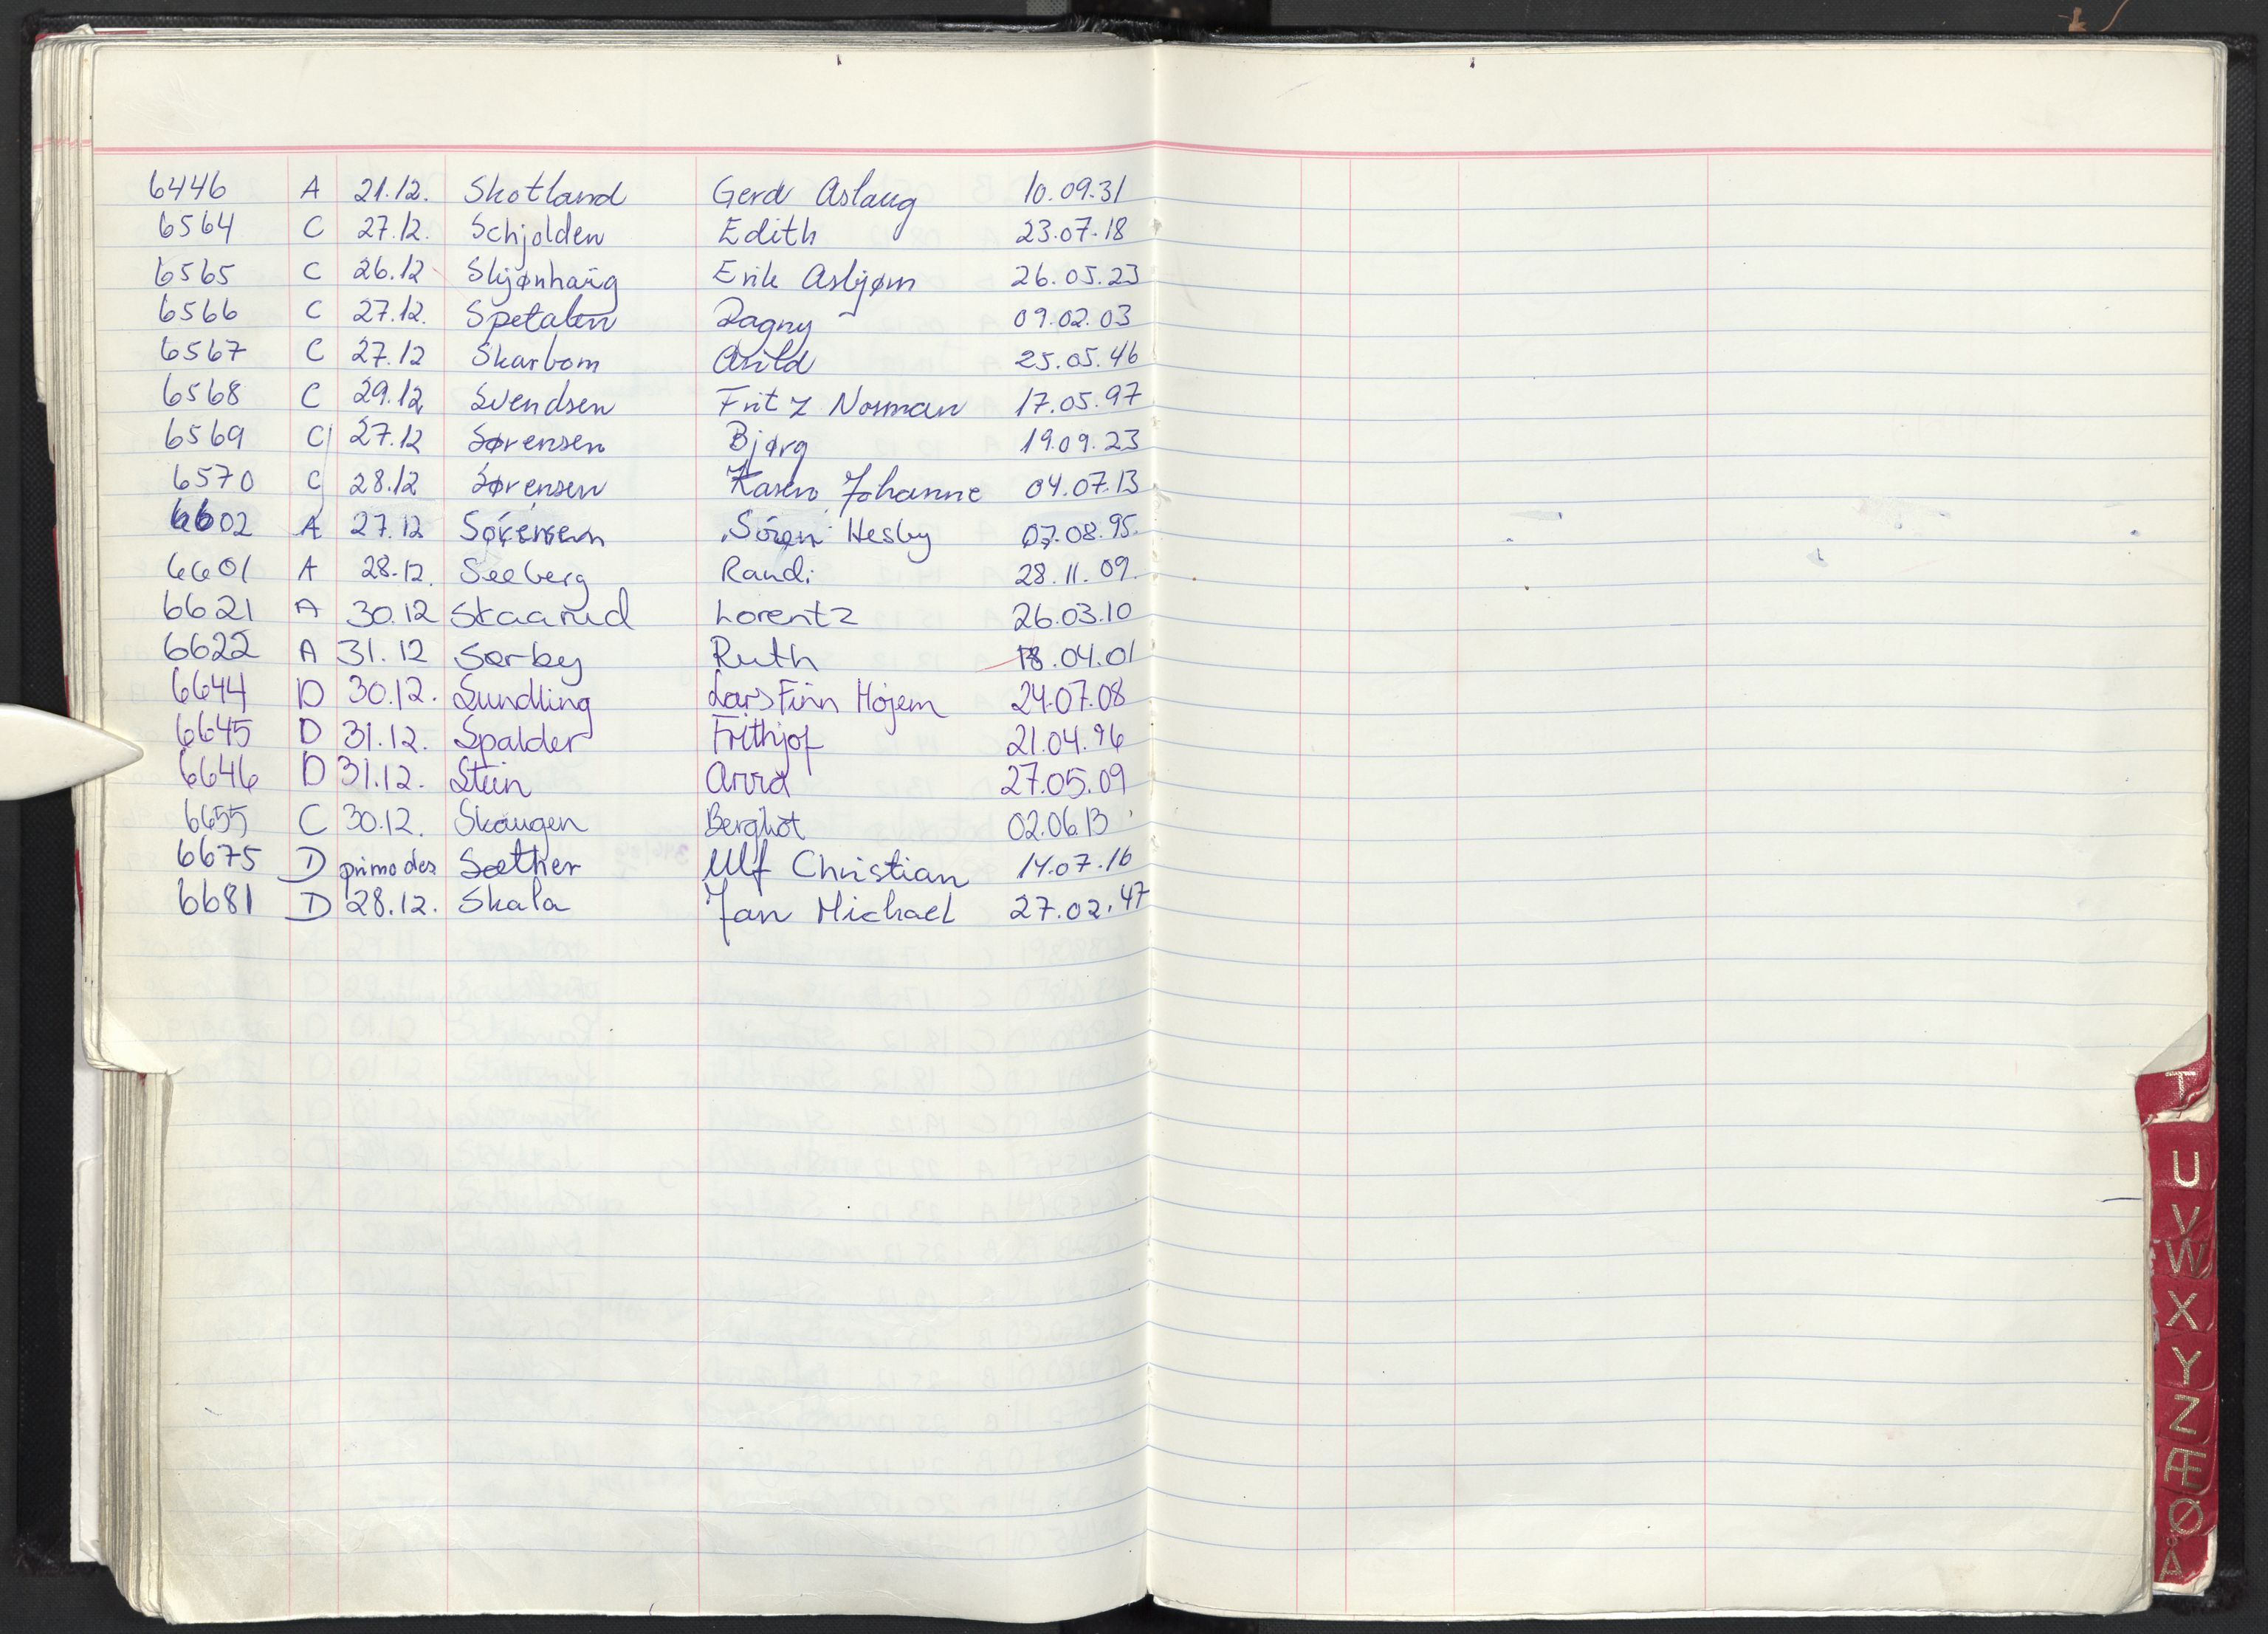 6446 A 21.12. Skotland Gerd Aslaug 10.09.31
6564 C 27.12. Schjolden Edith 23.07.18
6565 C 26.12 Skjønhaug Erik Asbjørn 26.05.23
6566 C 27.12. Spetalen Dagny 09.02.03
6567 C 27.12 Skarbom Arild 25.05.46
6568 C 29.12 Svendsen Fritz Norman 17.05.97
6569 C 27.12 Sørensen Bjørg 19.09.23
6570 C 28.12 Sørensen Karen Johanne 04.07.13
6602 A 27.12 Sørensen Sören Hesby 07.08.95.
6601 A 28.12. Seeberg Randi 28.11.09.
6621 A 30.12 Skaarud Lorentz 26.03.10
6622 A 31.12 Sørby Ruth 18.04.01
6644 D 30.12. Sundling Lars Finn Højem 24.07.08
6645 D 31.12. Spalder Frithjof 21.04.96
6646 D 31.12. Stein Arvid 27.05.09
6655 C 30.12. Skaugen Bergliot 02.06.13
6675 D primo des Sæther Ulf Christian 14.07.16
6681 D 28.12. Skala Jan Michael 27.02.47
T
U
V
W
X
Y
Z
Æ
Ø
Å